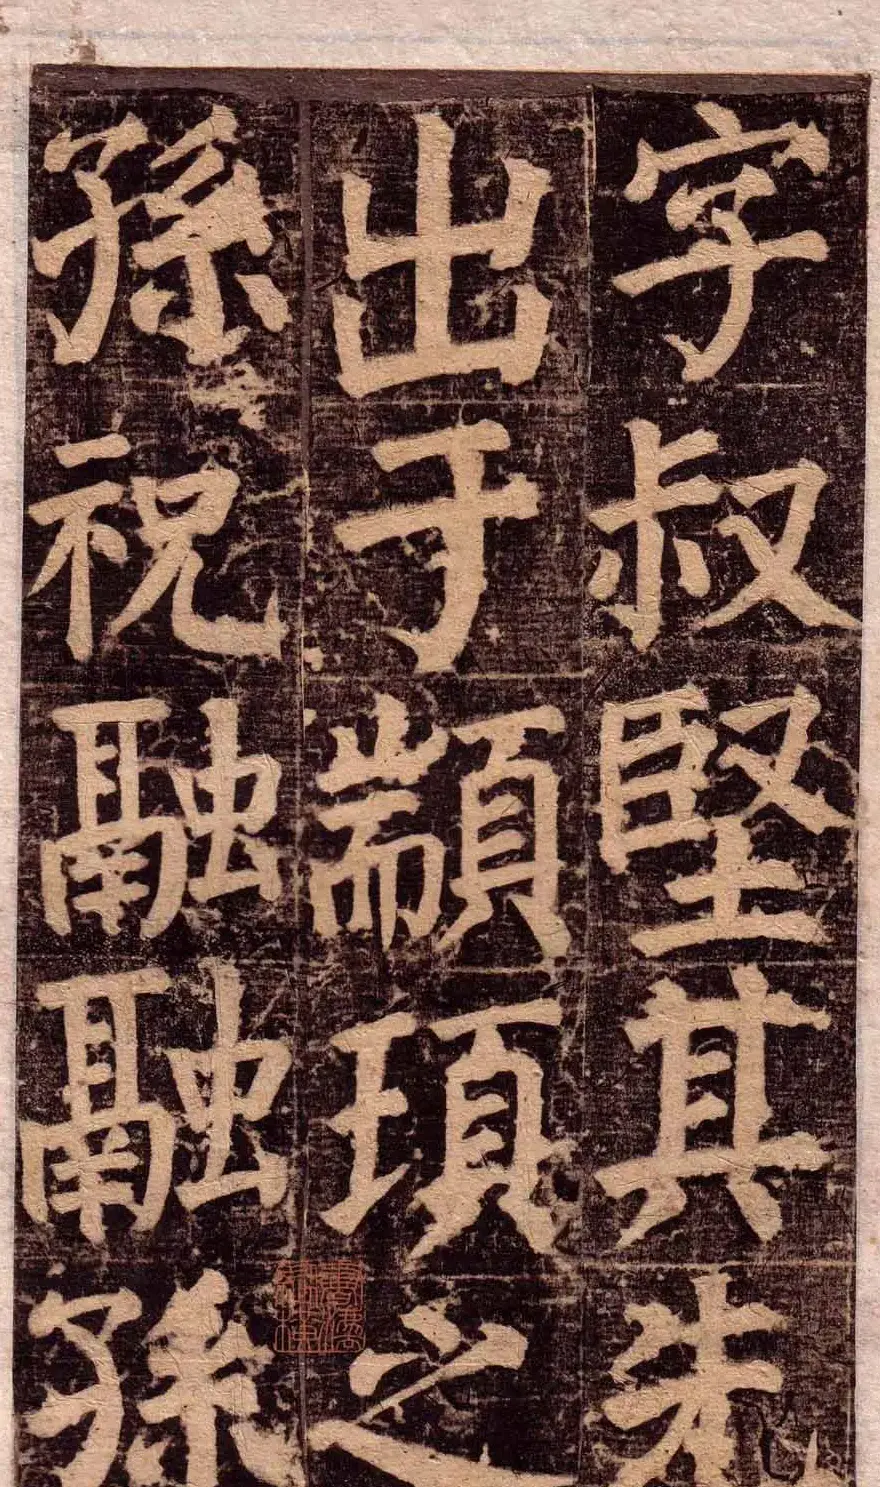 字叔堅其先
出于顓頊之
孫祝融融孫